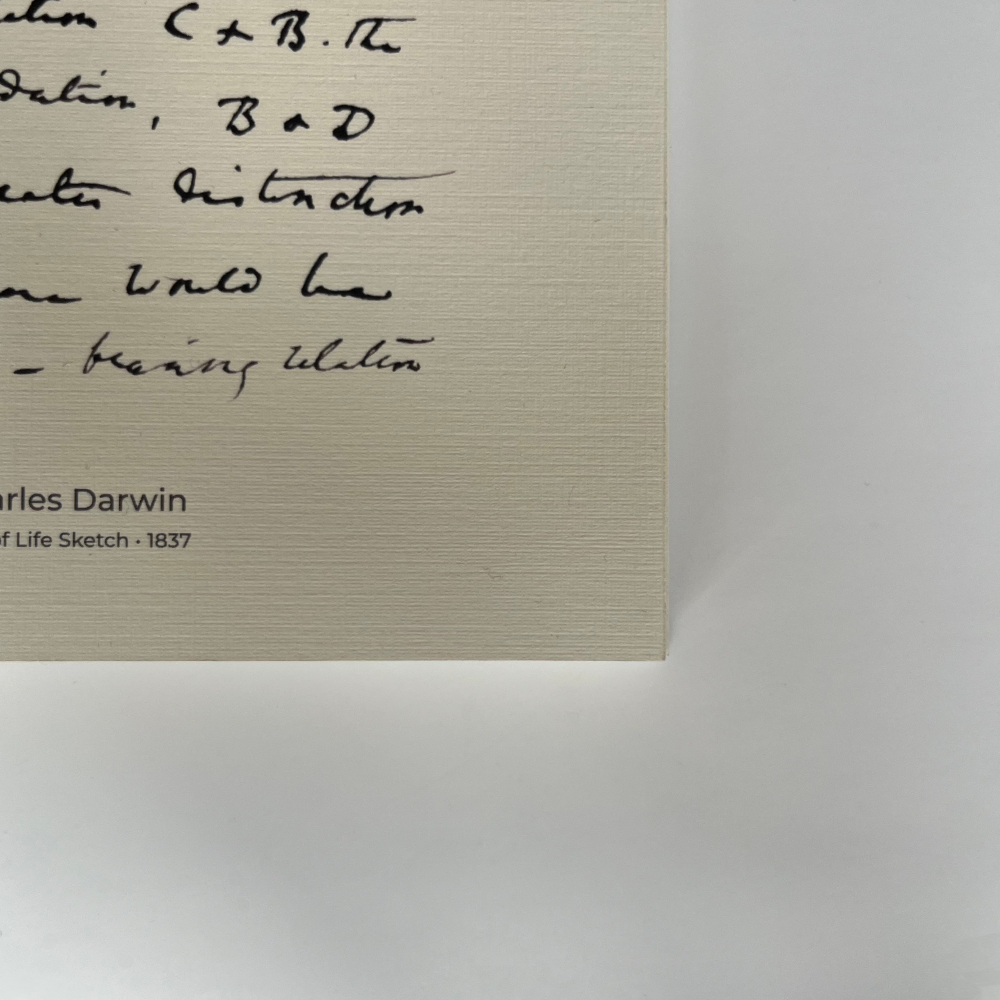 ation C + B. The
dation, B & D
eater distinction
would be
– bearing relation
arles Darwin
of Life Sketch · 1837